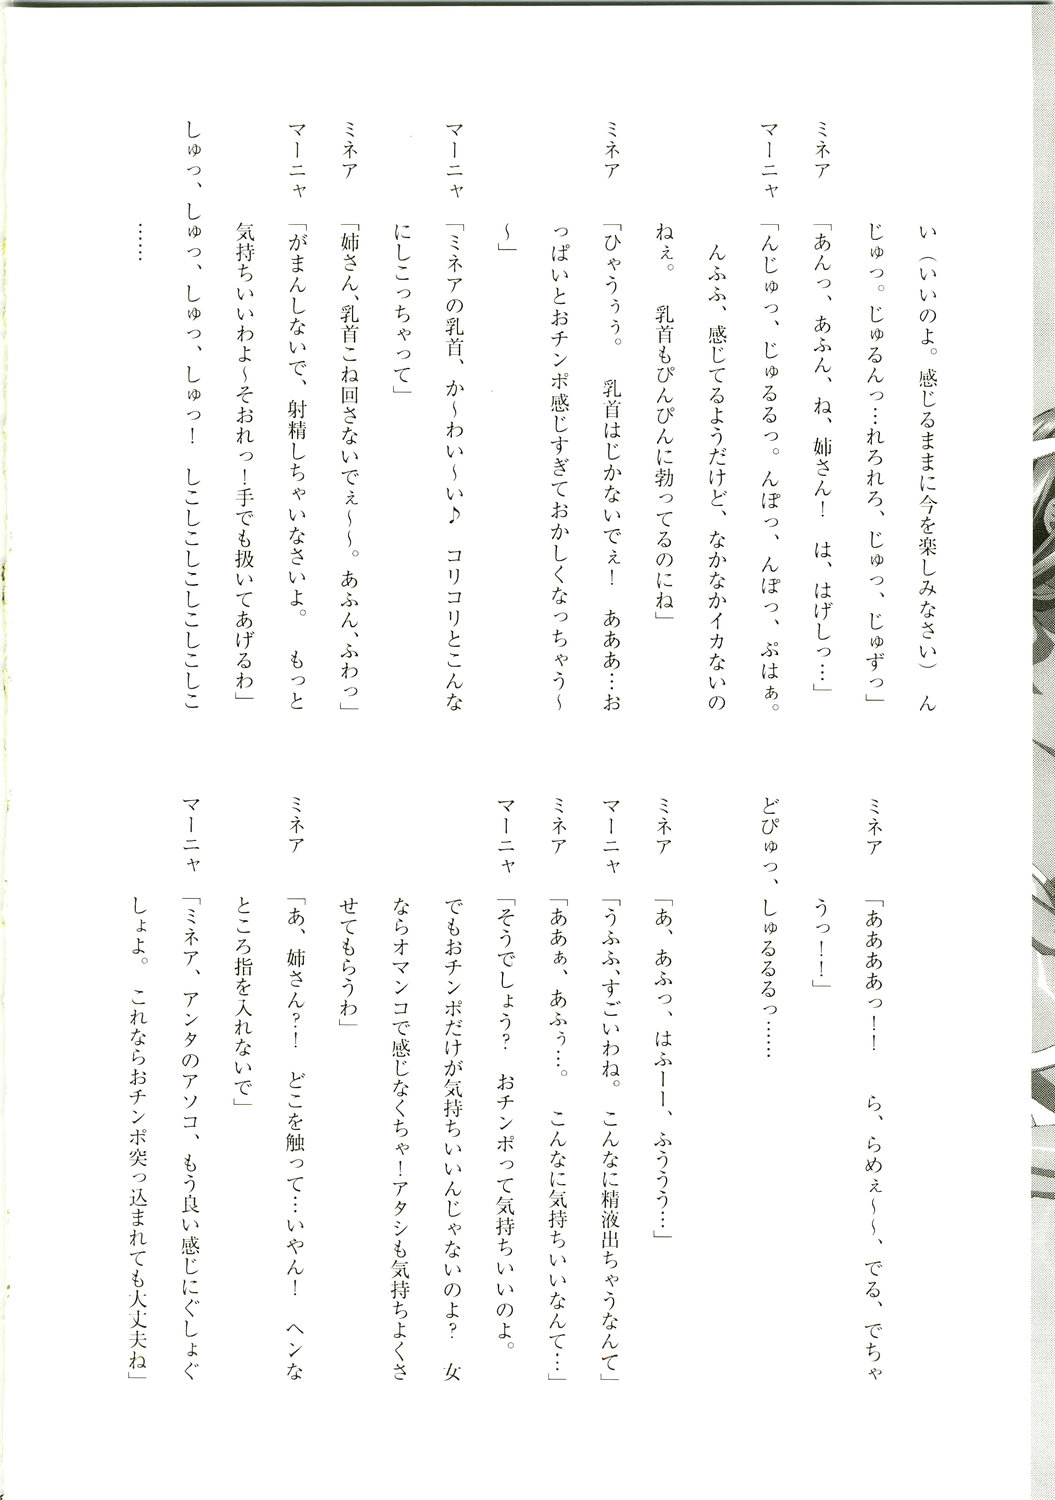 い（いいのよ。感じるままに今を楽しみなさい）　ん
じゅっ。じゅるんっ…れろれろ、じゅっ、じゅずっ」
ミネア　「あんっ、あふん、ね、姉さん！　は、はげしっ…」
マーニャ　「んじゅっ、じゅるるっ。んぽっ、んぽっ、ぷはぁ。
んふふ、感じてるようだけど、なかなかイカないの
ねぇ。　乳首もぴんぴんに勃ってるのにね」
ミネア　「ひゃうぅぅ。　乳首はじかないでぇ！　あああ…お
っぱいとおチンポ感じすぎておかしくなっちゃう～
～」
マーニャ　「ミネアの乳首、か～わい～い♪　コリコリとこんな
にしこっちゃって」
ミネア　「姉さん、乳首こね回さないでぇ～～。あふん、ふわっ」
マーニャ　「がまんしないで、射精しちゃいなさいよ。　もっと
気持ちいいわよ～そおれっ！手でも扱いてあげるわ」
しゅっ、しゅっ、しゅっ、しゅっ！　しこしこしこしこしこ
……
ミネア　「ああああっ！！　ら、らめぇ～～、でる、でちゃ
うっ！！」
どぴゅっ、しゅるるるっ……
ミネア　「あ、あふっ、はふーー、ふううう…」
マーニャ　「うふふ、すごいわね。こんなに精液出ちゃうなんて」
ミネア　「ああぁ、あふぅ…。　こんなに気持ちいいなんて…」
マーニャ　「そうでしょう？　おチンポって気持ちいいのよ。
でもおチンポだけが気持ちいいんじゃないのよ？　女
ならオマンコで感じなくちゃ！アタシも気持ちよくさ
せてもらうわ」
ミネア　「あ、姉さん？！　どこを触って…いやん！　ヘンな
ところ指を入れないで」
マーニャ　「ミネア、アンタのアソコ、もう良い感じにぐしょぐ
しょよ。これならおチンポ突っ込まれても大丈夫ね」